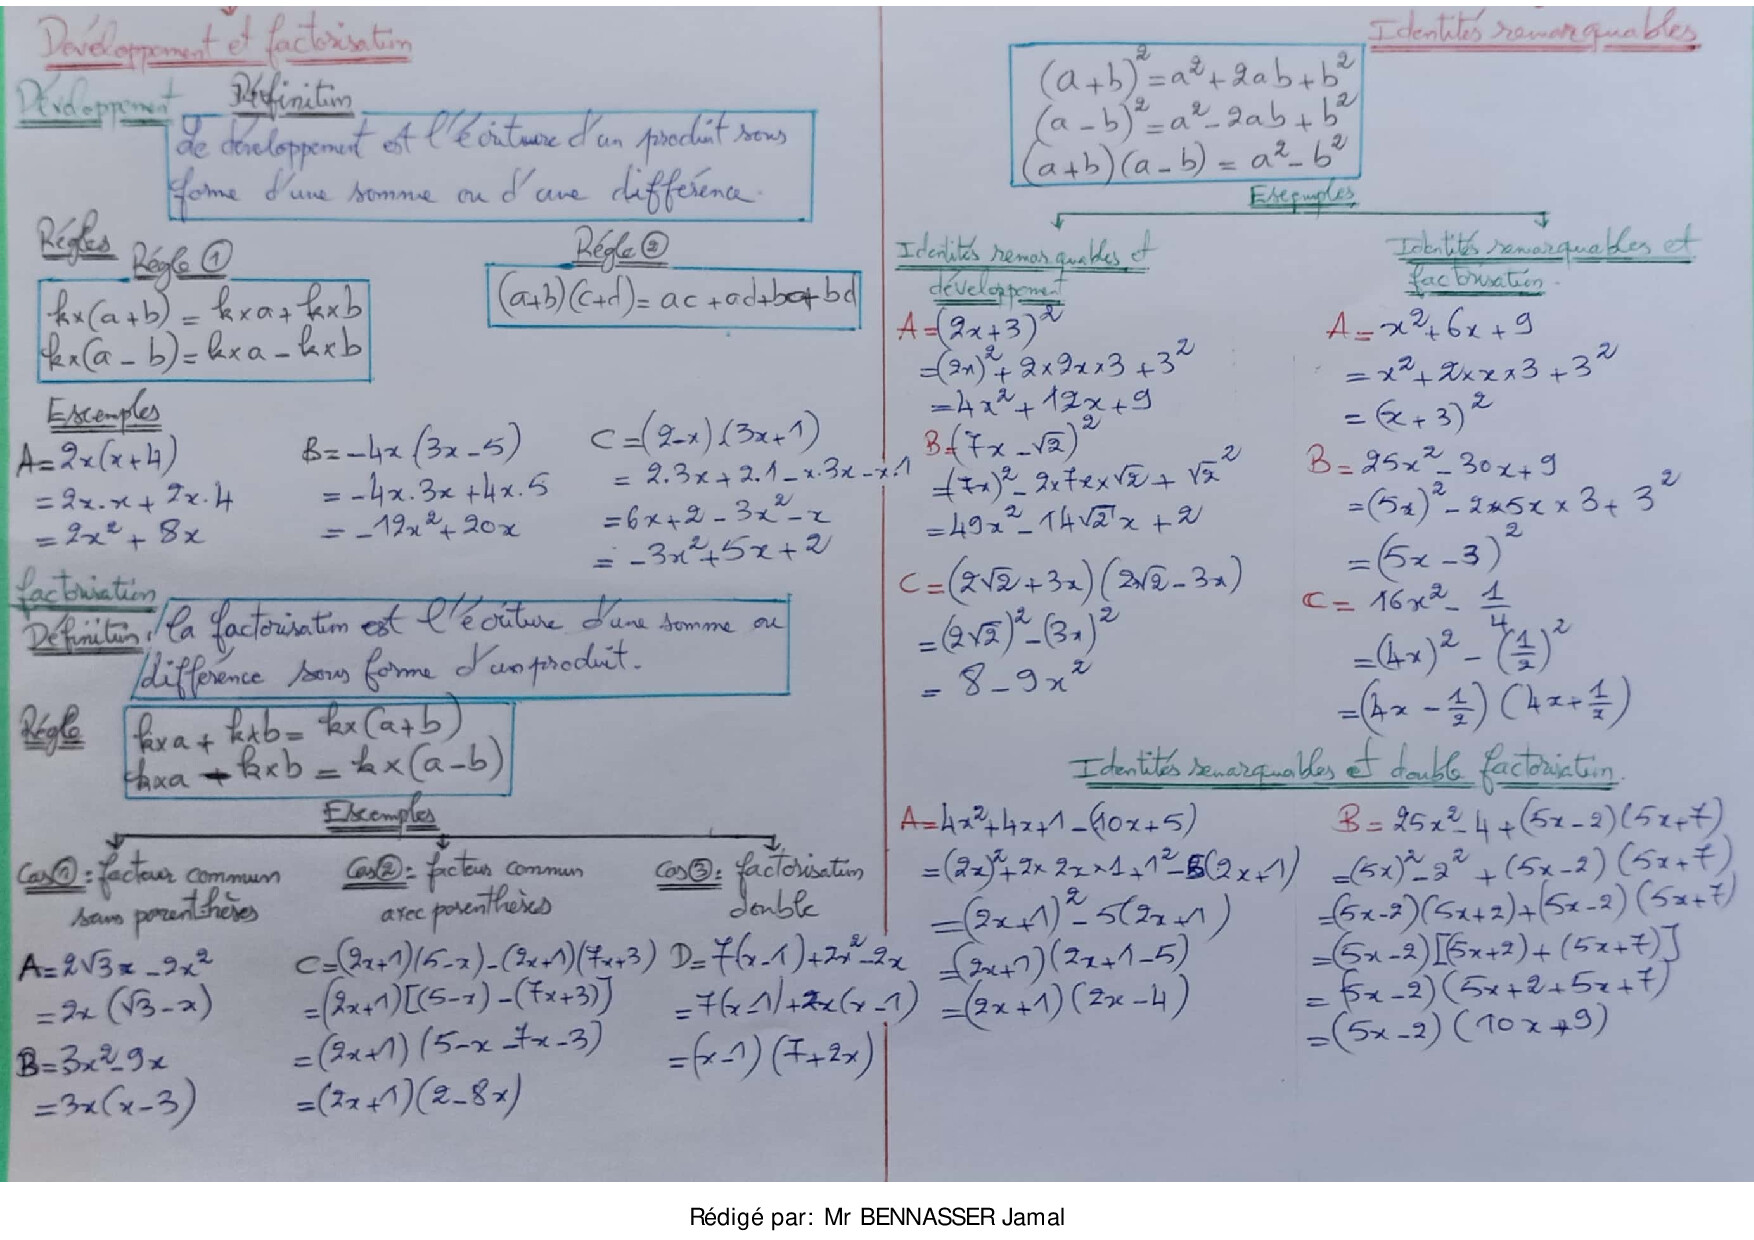 Développement et factorisation
Développement
Définition
Le développement est l'écriture d'un produit sous
forme d'une somme ou d'une différence.
Régles
Régle ①
k×(a+b) = k×a + k×b
k×(a-b) = k×a - k×b
Régle ②
(a+b)(c+d) = ac + ad + bc + bd
Exemples
A = 2x(x+4)
= 2x.x + 2x.4
= 2x² + 8x
B = -4x(3x-5)
= -4x.3x + 4x.5
= -12x² + 20x
C = (2-x).(3x+1)
= 2.3x + 2.1 - x.3x - x.1
= 6x + 2 - 3x² - x
= -3x² + 5x + 2
factorisation
Définition:
la factorisation est l'écriture d'une somme ou
différence sous forme d'un produit.
Régle
k×a + k×b = k×(a+b)
k×a - k×b = k×(a-b)
Exemples
Cas①: facteur commun
sans parenthèses
A = 2√3x - 2x²
= 2x(√3-x)
B = 3x² - 9x
= 3x(x-3)
Cas②: facteur commun
avec parenthèses
C = (2x+1)(5-x) - (2x+1)(7x+3)
= (2x+1)[(5-x) - (7x+3)]
= (2x+1)(5-x-7x-3)
= (2x+1)(2-8x)
Cas③: factorisation
double
D = 7(x-1) + 2x² - 2x
= 7(x-1) + 2x(x-1)
= (x-1)(7+2x)
Identités remarquables
(a+b)² = a² + 2ab + b²
(a-b)² = a² - 2ab + b²
(a+b)(a-b) = a² - b²
Exemples
Identités remarquables et
développement
A = (2x+3)²
= (2x)² + 2×2x×3 + 3²
= 4x² + 12x + 9
B = (7x-√2)²
= (7x)² - 2×7x×√2 + √2²
= 49x² - 14√2x + 2
C = (2√2+3x)(2√2-3x)
= (2√2)² - (3x)²
= 8 - 9x²
Identités remarquables et
factorisation.
A = x² + 6x + 9
= x² + 2×x×3 + 3²
= (x+3)²
B = 25x² - 30x + 9
= (5x)² - 2×5x×3 + 3²
= (5x-3)²
C = 16x² - 1/4
= (4x)² - (1/2)²
= (4x - 1/2)(4x + 1/2)
Identités remarquables et double factorisation.
A = 4x² + 4x + 1 - (10x+5)
= (2x)² + 2×2x×1 + 1² - 5(2x+1)
= (2x+1)² - 5(2x+1)
= (2x+1)(2x+1-5)
= (2x+1)(2x-4)
B = 25x² - 4 + (5x-2)(5x+7)
= (5x)² - 2² + (5x-2)(5x+7)
= (5x-2)(5x+2) + (5x-2)(5x+7)
= (5x-2)[(5x+2) + (5x+7)]
= (5x-2)(5x+2+5x+7)
= (5x-2)(10x+9)
Rédigé par: Mr BENNASSER Jamal